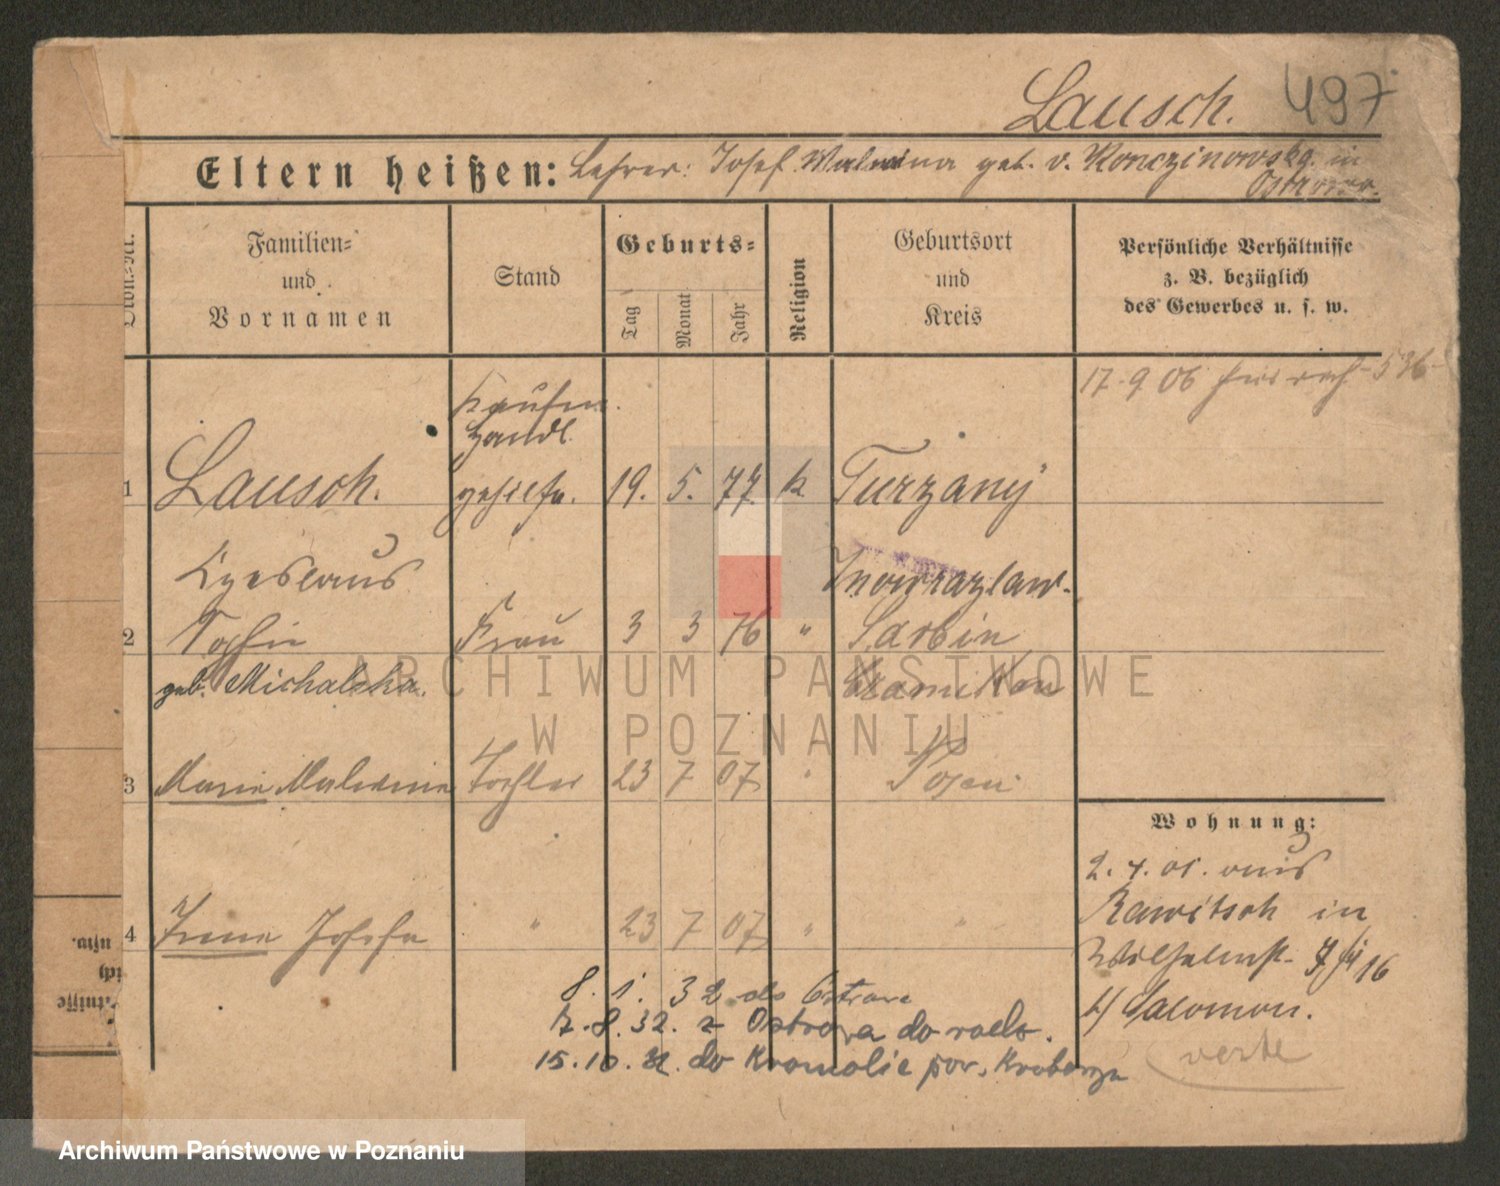 Lausch. 497
Eltern heißen: Lehrer: Josef Malwina geb. v. Konczinowska. in
Ostrowo.
Familien= und Vornamen
Stand
Geburts=
Tag
Monat
Jahr
Religion
Geburtsort und Kreis
Persönliche Verhältnisse
z. B. bezüglich
des Gewerbes u. s. w.
17. 9 06 536
Kaufm.
Handl.
1 Lausch. gehilfe. 19. 5. 77. k Turzany
Inowrazlaw.
2 Sophie Frau 3 3 76 " Sarbin
geb. Michalska.
ARCHIWUM PAŃSTWOWE
W POZNANIU
3 Marie Malwine Tochter 23 7 07 " Posen
Wohnung:
2. 4. 01. aus
Rawitsch in
4 Irene Josefa " 23 7 07 " "
Wilhelmst. 16
b/ Salomon.
verte
8. 1. 32 do Ostrowa
17. 8. 32. z Ostrowa do
15. 10. 32. do Kromolic pow.
Archiwum Państwowe w Poznaniu